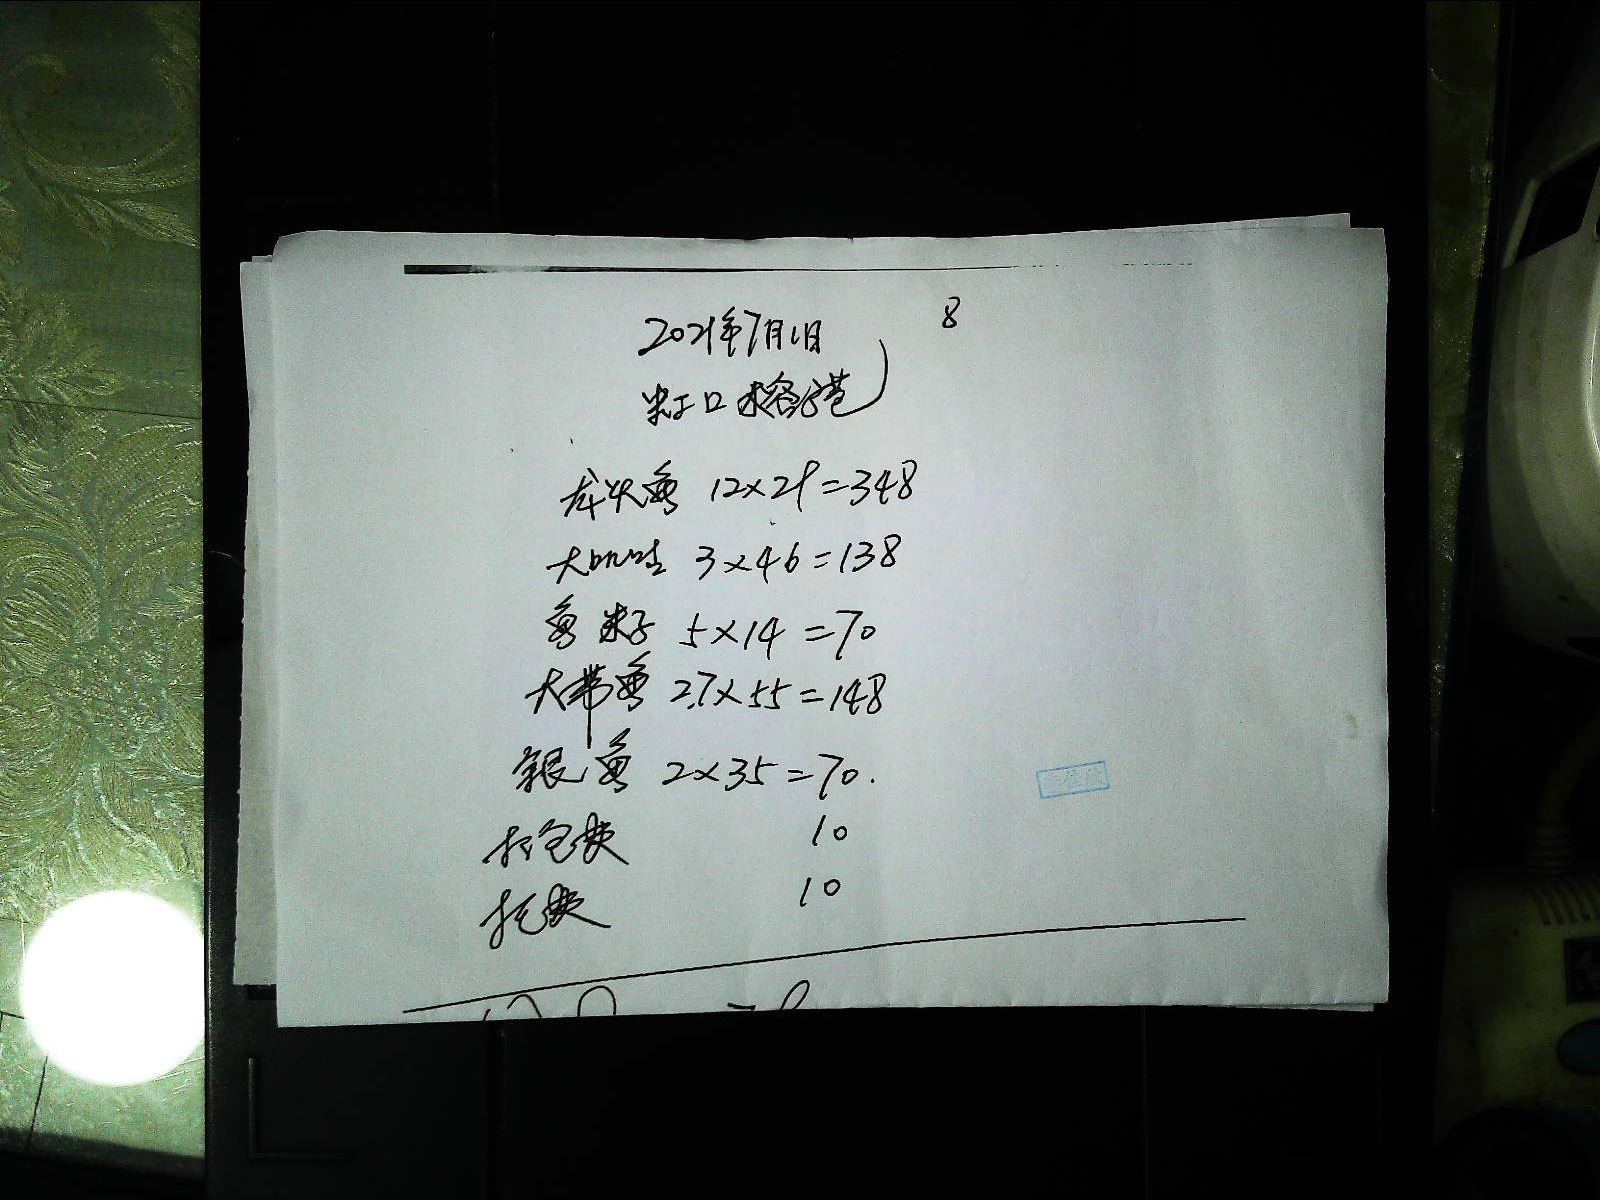 8
2021年7月1日
虹口 榕港
龙头鱼 12×29=348
大 3×46=138
鱼籽 5×14=70
大带鱼 2.7×55=148
银鱼 2×35=70.
打包费 10
托费 10